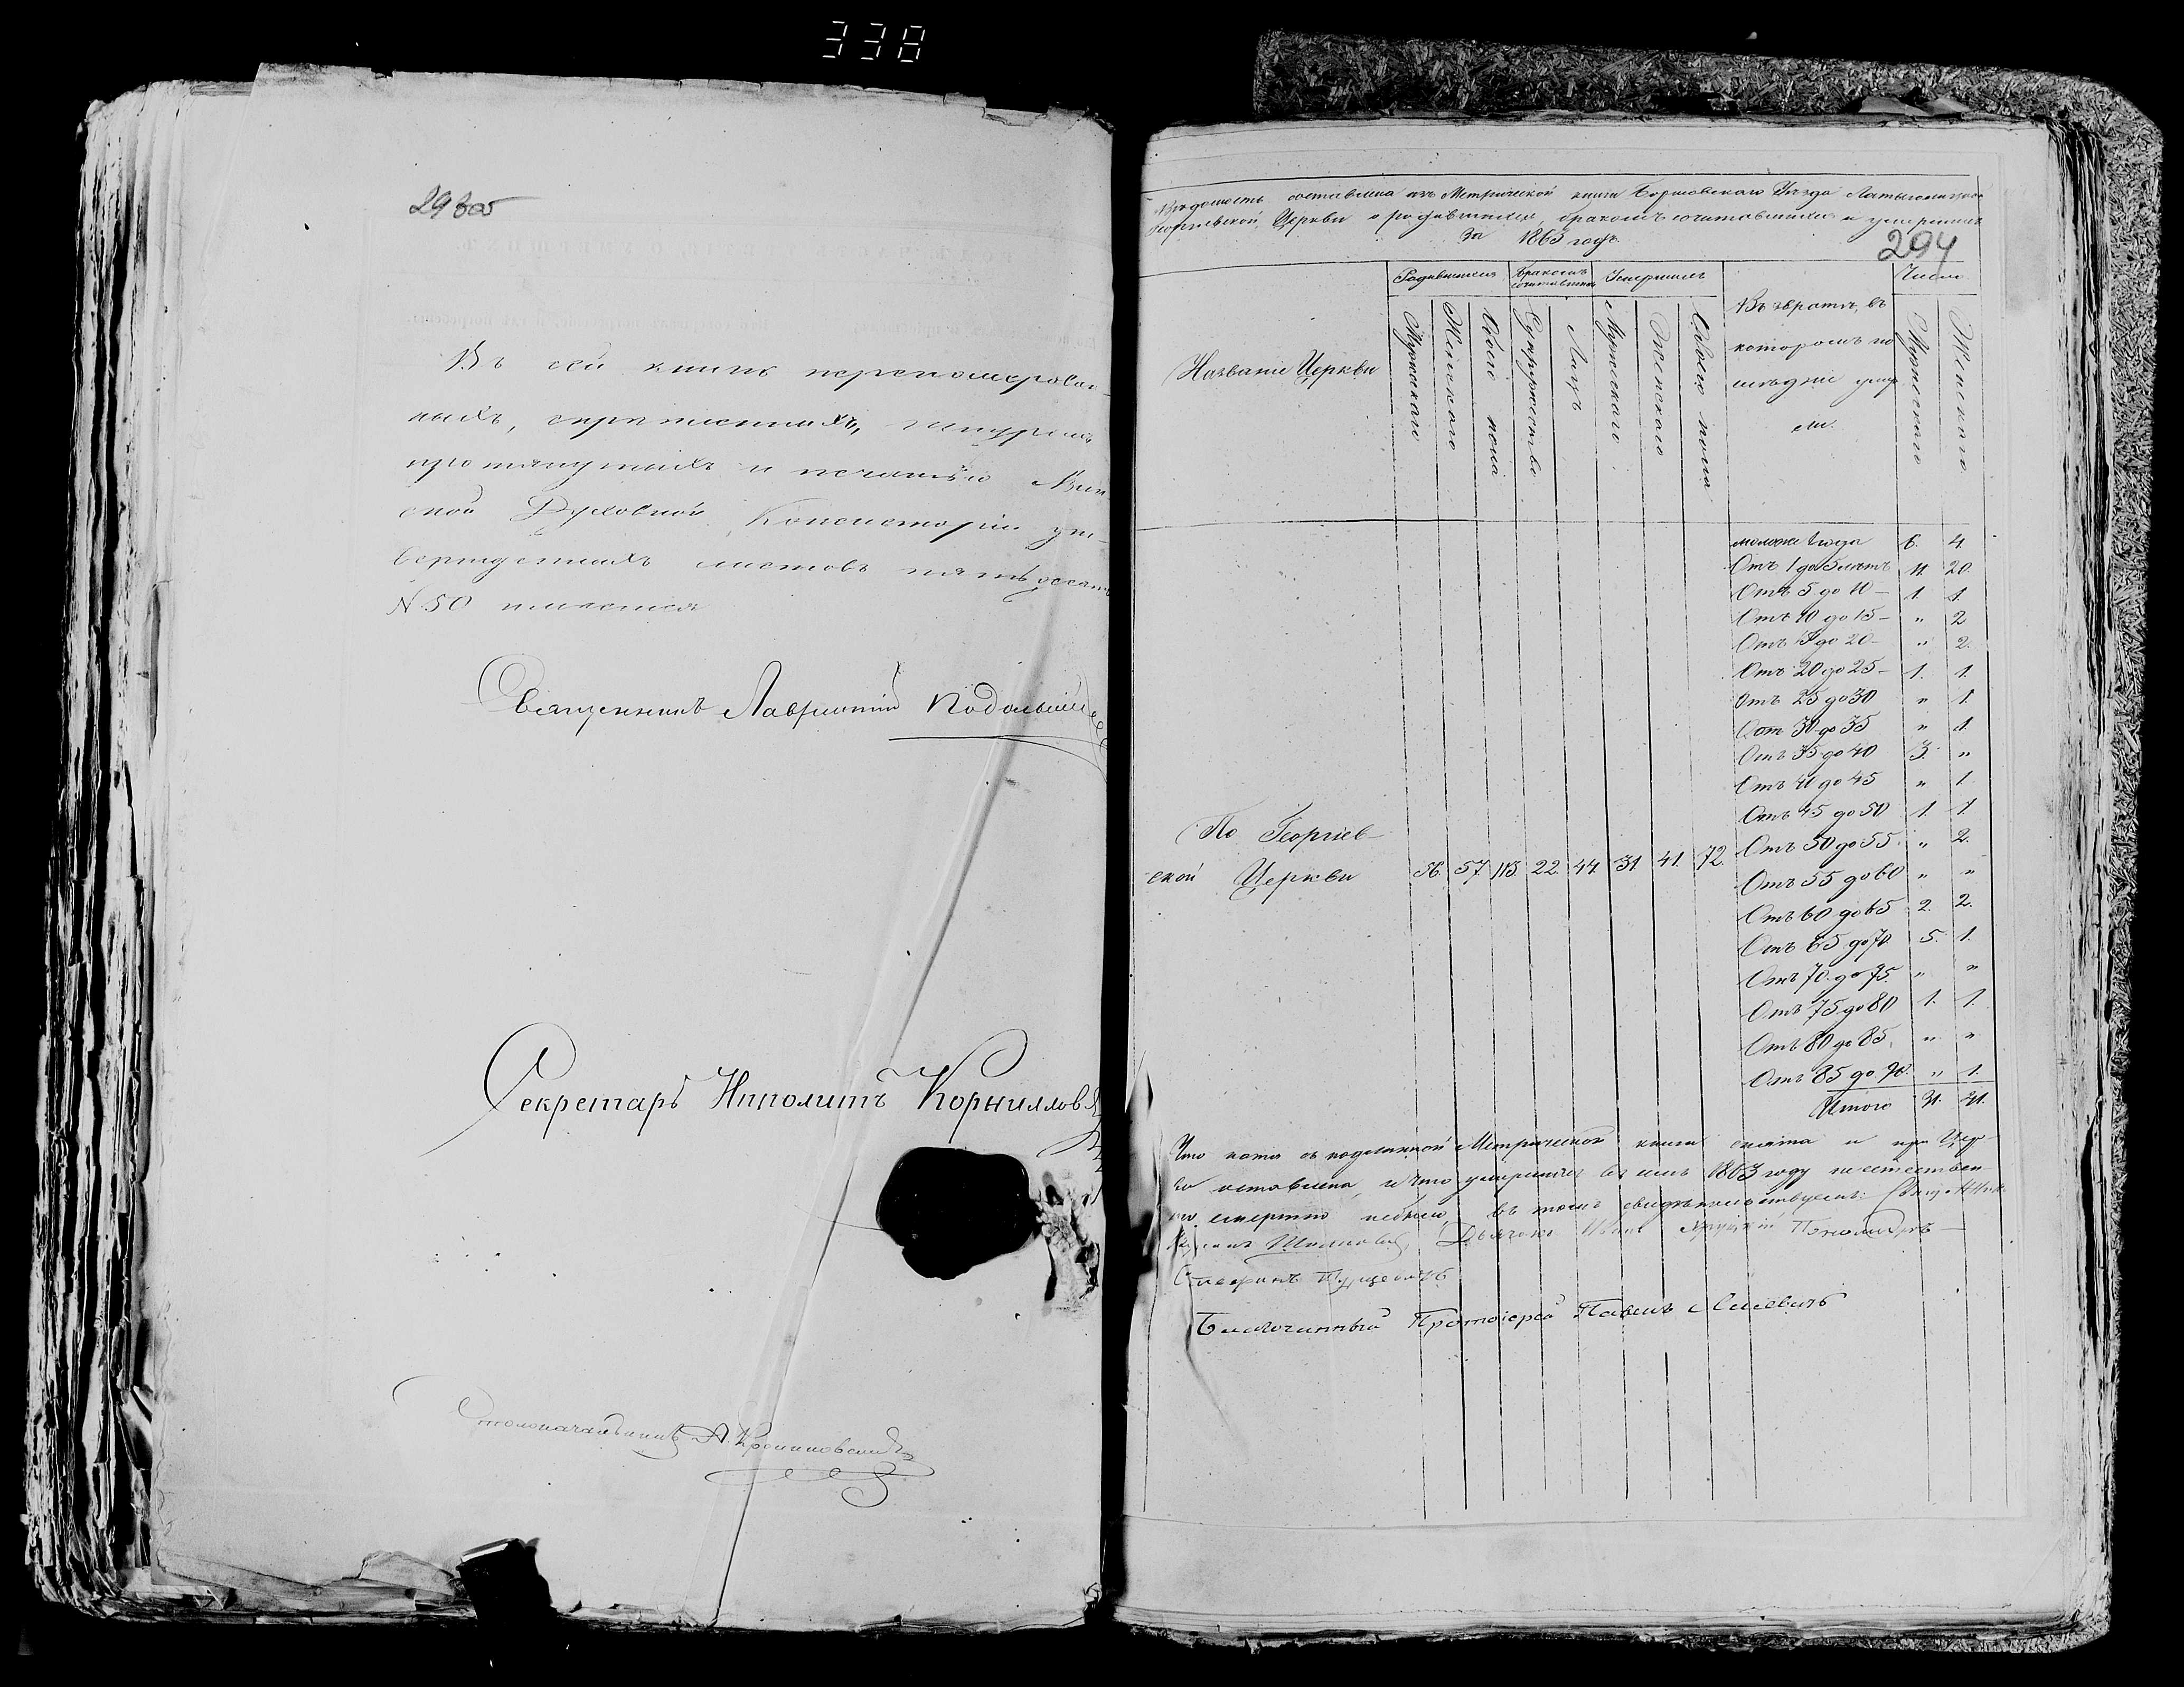 338
29 bоб
Въ сей книгѣ перенумерован-
ныхъ, скрѣпленныхъ, шнуромъ
протянутыхъ и печатью Мин-
ской Духовной Консисторіи ут-
вержденныхъ листовъ пятьдесятъ
N. 50 имѣется
Священникъ Лаврентій Подольскій
Секретарь Ипполитъ Корнилловъ
Столоначальникъ А.
294
Вѣдомость составлена изъ Метрической книги Борисовскаго Уѣзда
Георгіевской Церкви о родившихся, бракомъ сочитавшихся и умершихъ
За 1863 годъ.
Названіе Церкви
Родившихся
Бракомъ сочитавшихся
Умершихъ
Въ зратѣ, въ
которомъ по
слѣдніе умер
ли.
Число
Мужескаго
Женскаго
Обоего пола
Супружество
Лицъ
Мужескаго
Женскаго
Обоего пола
Мужескаго
Женскаго
моложе 1 года 6. 4.
Отъ 1 до 5 лѣтъ 11. 20.
Отъ 5 до 10 – 1 1.
Отъ 10 до 15 – " 2
Отъ 15 до 20 – " 2.
Отъ 20 до 25 – 1. 1.
Отъ 25 до 30 " 1.
Отъ 30 до 35 " 1.
Отъ 35 до 40 3. "
Отъ 40 до 45 " 1.
Отъ 45 до 50 1. 1.
Отъ 50 до 55 " 2.
Отъ 55 до 60 " "
Отъ 60 до 65 2. 2.
Отъ 65 до 70 5. 1.
Отъ 70 до 75. " "
Отъ 75 до 80 1. 1.
Отъ 80 до 85. " "
Отъ 85 до 90. " 1.
Итого 31. 41.
По Георгіев-
ской Церкви 56. 57. 113. 22. 44. 31. 41. 72.
Что копія съ подлинной Метрической книги снята и при Цер-
ко оставлена, и что умершихъ въ семъ 1863 году неестествен
ною смертію небыло, въ томъ свидѣтельствуемъ:
Дьячокъ Пономарь
Благочинный Протоіерей Павелъ